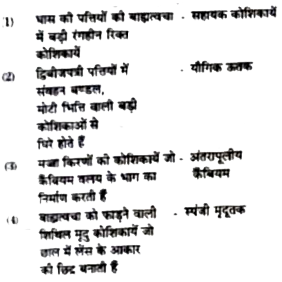 (1) घास की पत्तियों की बाह्यत्वचा - सहायक कोशिकायें
में बड़ी रंगहीन रिक्त
कोशिकायें
(2) द्विबीजपत्री पत्तियों में - यौगिक ऊतक
संवहन बण्डल,
मोटी भित्ति वाली बड़ी
कोशिकाओं से
घिरे होते हैं
(3) मज्जा किरणों की कोशिकायें जो - अंतरापूलीय
कैंबियम वलय के भाग का कैंबियम
निर्माण करती हैं
(4) बाह्यत्वचा को फाड़ने वाली - स्पंजी मृदूतक
शिथिल मृदु कोशिकायें जो
छाल में लेंस के आकार
की छिद्र बनाती हैं